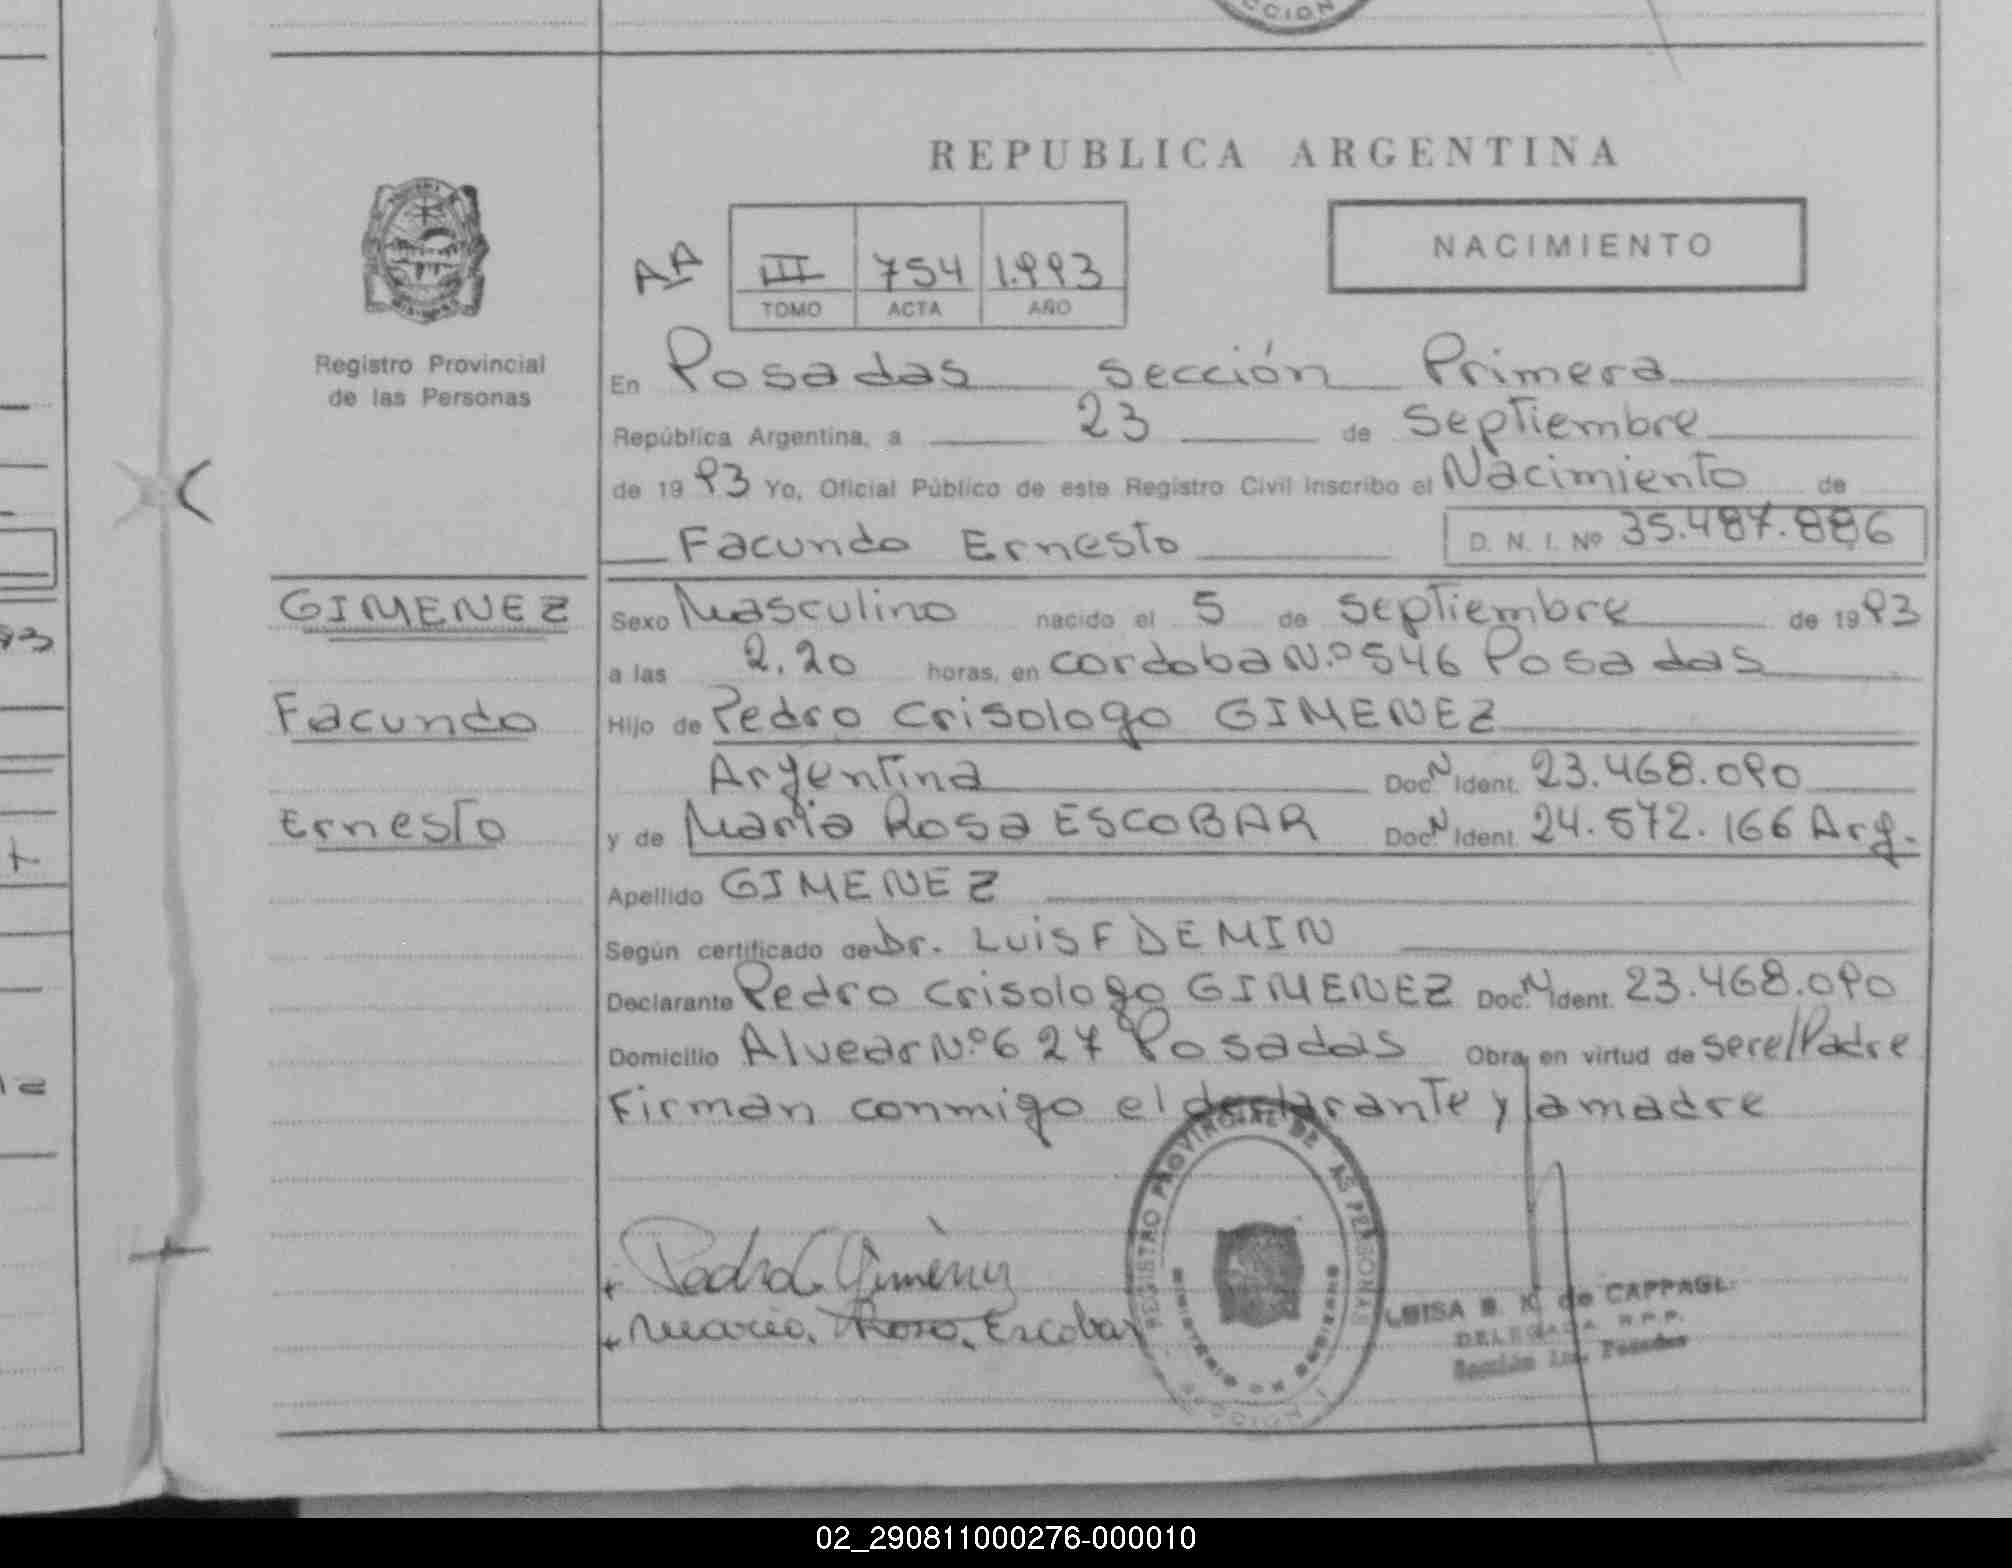 CCION
REPUBLICA ARGENTINA
NACIMIENTO
AA III 754 1.993
TOMO ACTA AÑO
Registro Provincial
de las Personas
En Posadas sección Primera
República Argentina, a 23 de Septiembre
de 1993 Yo, Oficial Público de este Registro Civil inscribo el Nacimiento de
Facundo Ernesto D. N. I. Nº 35.487.886
GIMENEZ
Facundo
Ernesto
Sexo Masculino nacido el 5 de Septiembre de 1993
a las 2.20 horas, en cordoba N.º 546 Posadas
Hijo de Pedro Crisologo GIMENEZ
Argentina Doc. N Ident. 23.468.090
y de Maria Rosa ESCOBAR Doc. N Ident. 24.572.166 Arg.
Apellido GIMENEZ
Según certificado de Dr. LUIS F DEMIN
Declarante Pedro Crisologo GIMENEZ Doc. N Ident. 23.468.090
Domicilio Alvear N.º 627 Posadas Obra en virtud de ser el Padre
Firman conmigo el declarante y la madre
REGISTRO PROVINCIAL DE LAS PERSONAS
MISIONES
Pedro C. Giménez
Maria Rosa Escobar
LUISA B. K. de CAPPAGL
DELEGADA R.P.P.
Sección 1ra. Posadas
02_290811000276-000010